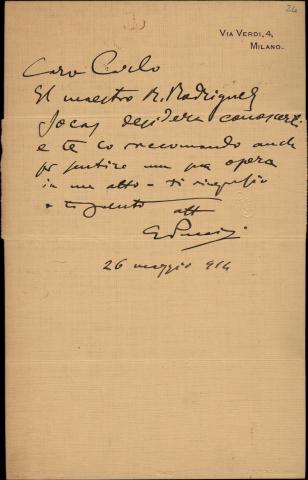 24
VIA VERDI, 4,
MILANO.
Caro Carlo
El maestro R. Rodriguez
Socas desidera conoscerti
e te lo raccomando anche
per sentire una sua opera
in un atto - ti ringrazio
e ti saluto
aff
GPuccini
26 maggio 914